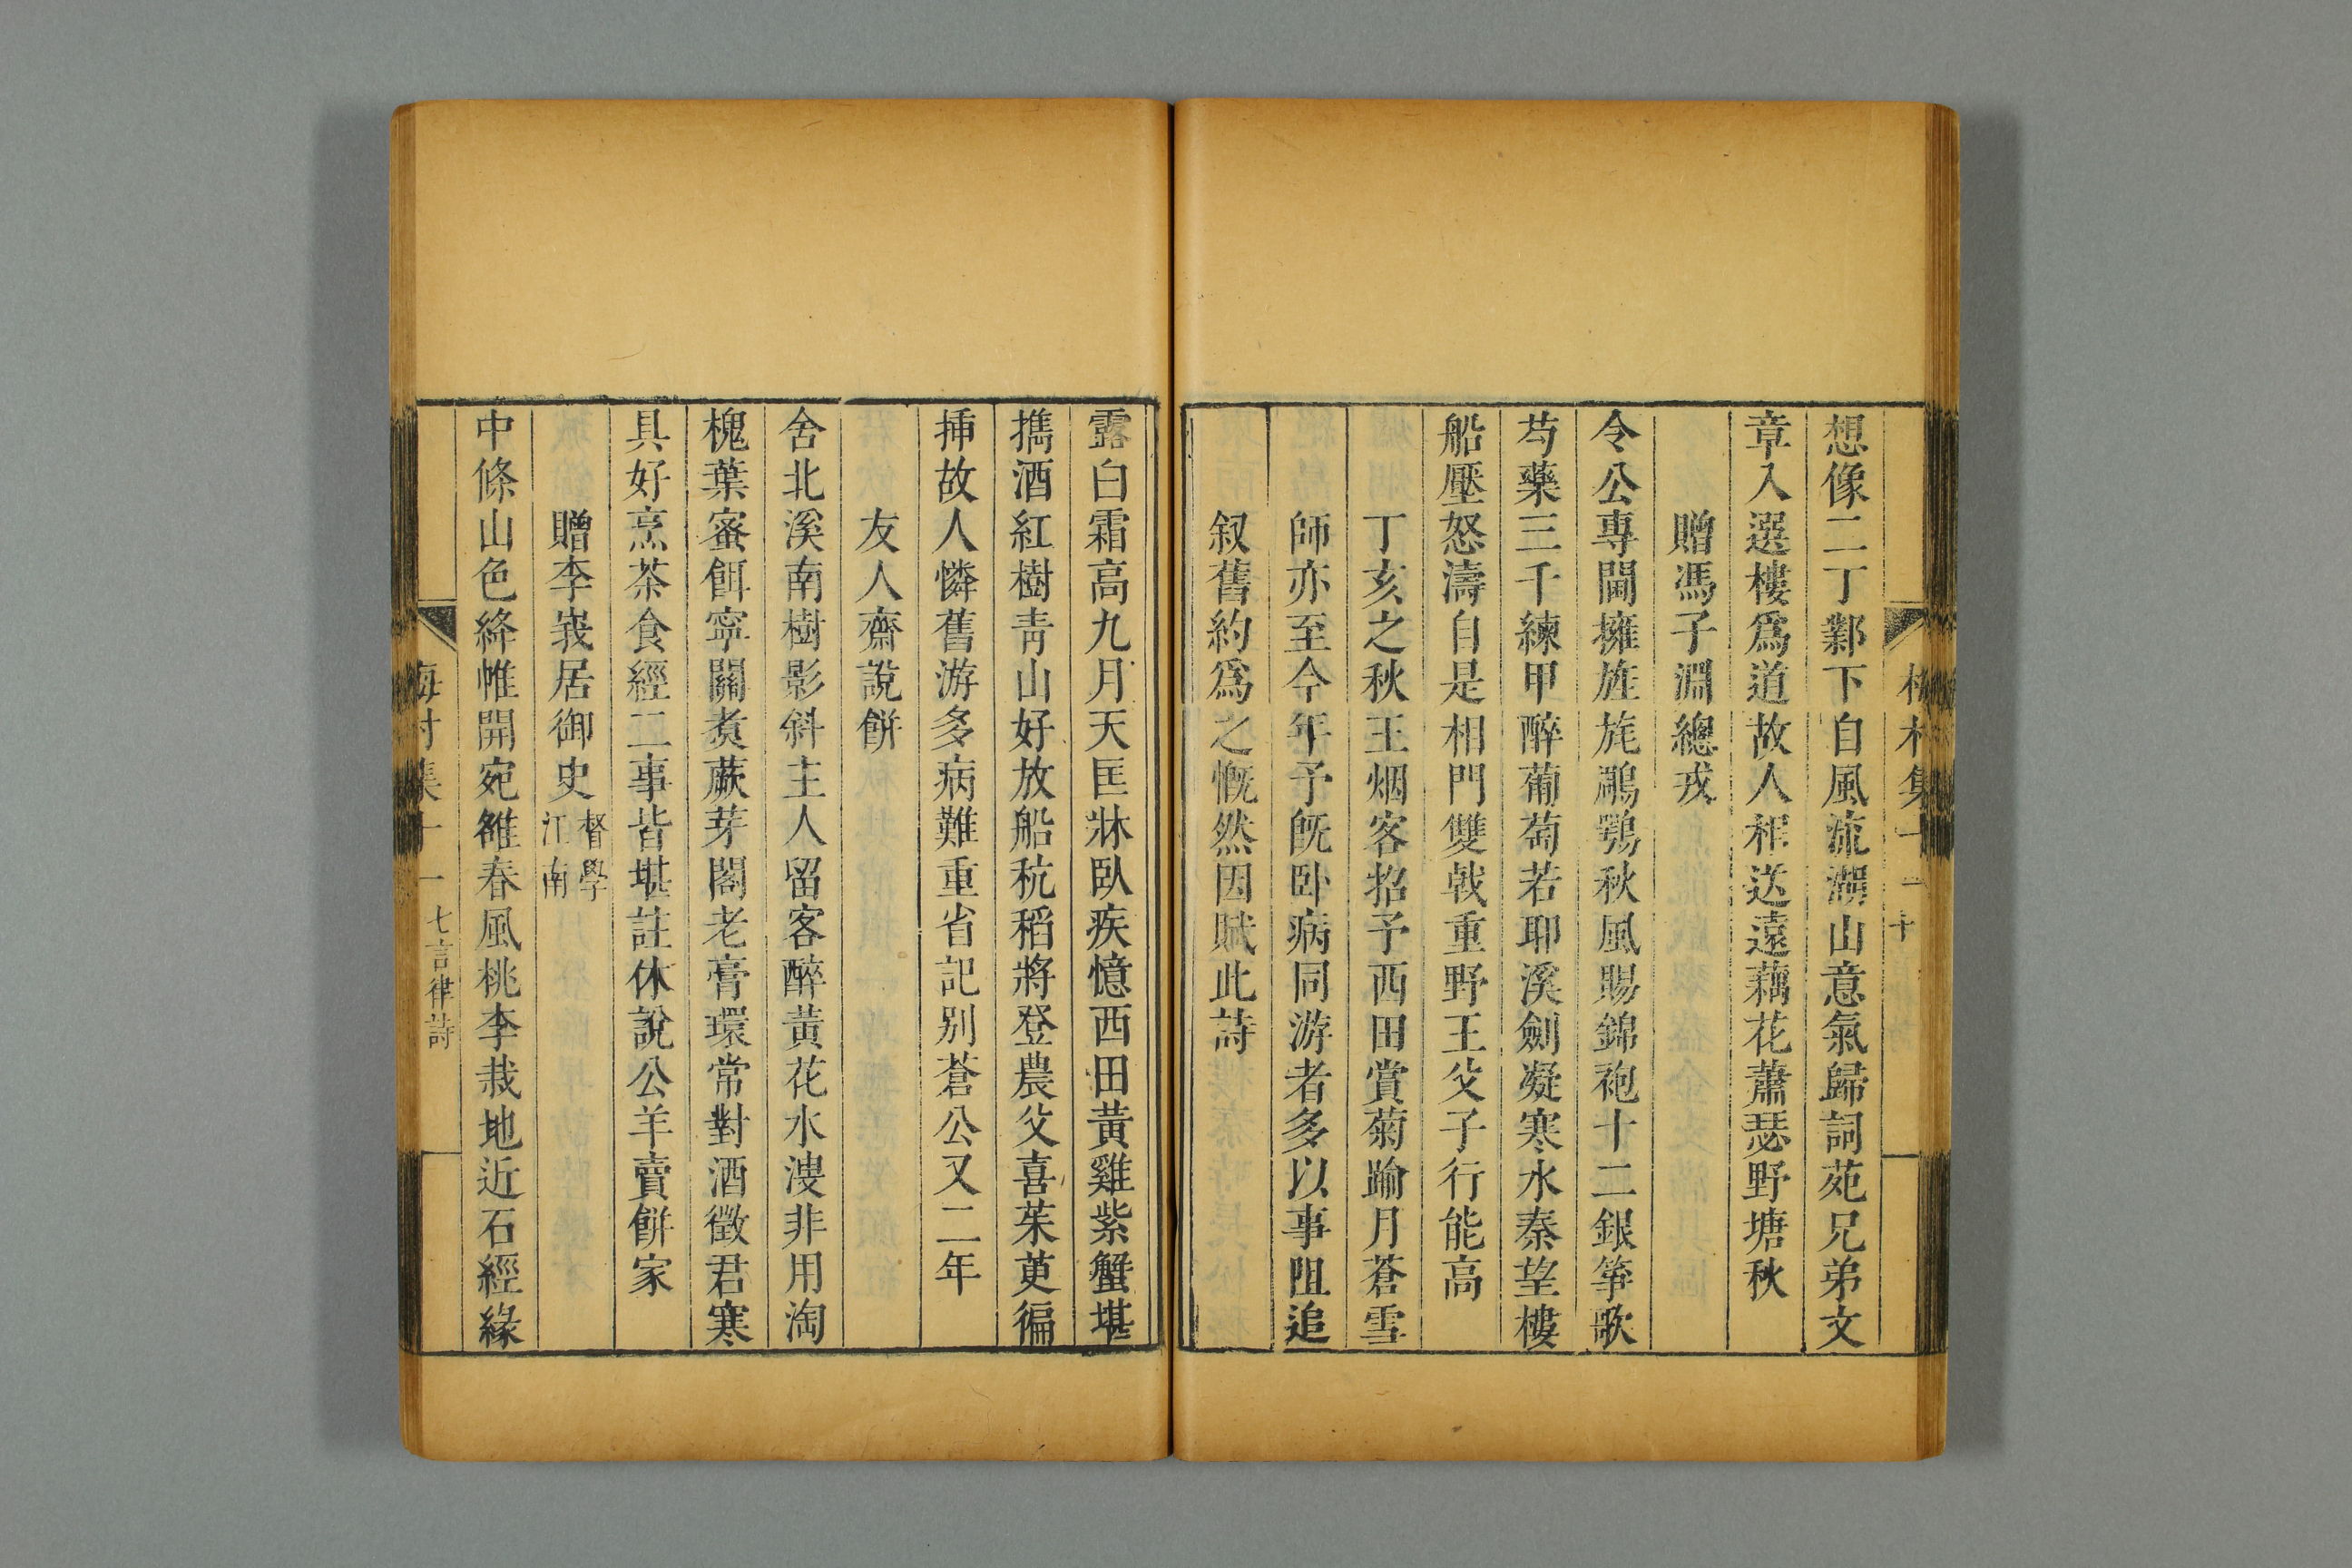 想像二丁鄴下自風流湖山意氣歸詞苑兄弟文
章入選樓為道故人相送遠藕花蕭瑟野塘秋
贈馮子淵總戎
令公專閫擁旌旄鵰鶚秋風賜錦袍十二銀箏歌
芍藥三千練甲醉葡萄若耶溪劍凝寒水秦望樓
船壓怒濤自是相門雙戟重野王父子行能高
丁亥之秋王烟客招予西田賞菊踰月蒼雪
師亦至今年予旣卧病同游者多以事阻追
叙舊約爲之慨然因賦此詩
露白霜高九月天匡牀臥疾憶西田黃雞紫蟹堪
擕酒紅樹靑山好放船秔稻將登農父喜茱萸徧
揷故人憐舊游多病難重省記别蒼公又二年
友人齋說餅
舍北溪南樹影斜主人留客醉黃花水溲非用淘
槐葉蜜餌寧關煑蕨芽閣老膏環常對酒徵君寒
具好烹茶食經二事皆堪註休說公羊賣餅家
贈李峩居御史 督學江南
中條山色絳帷開宛雒春風桃李栽地近石經緣
梅村集十一 七言律詩